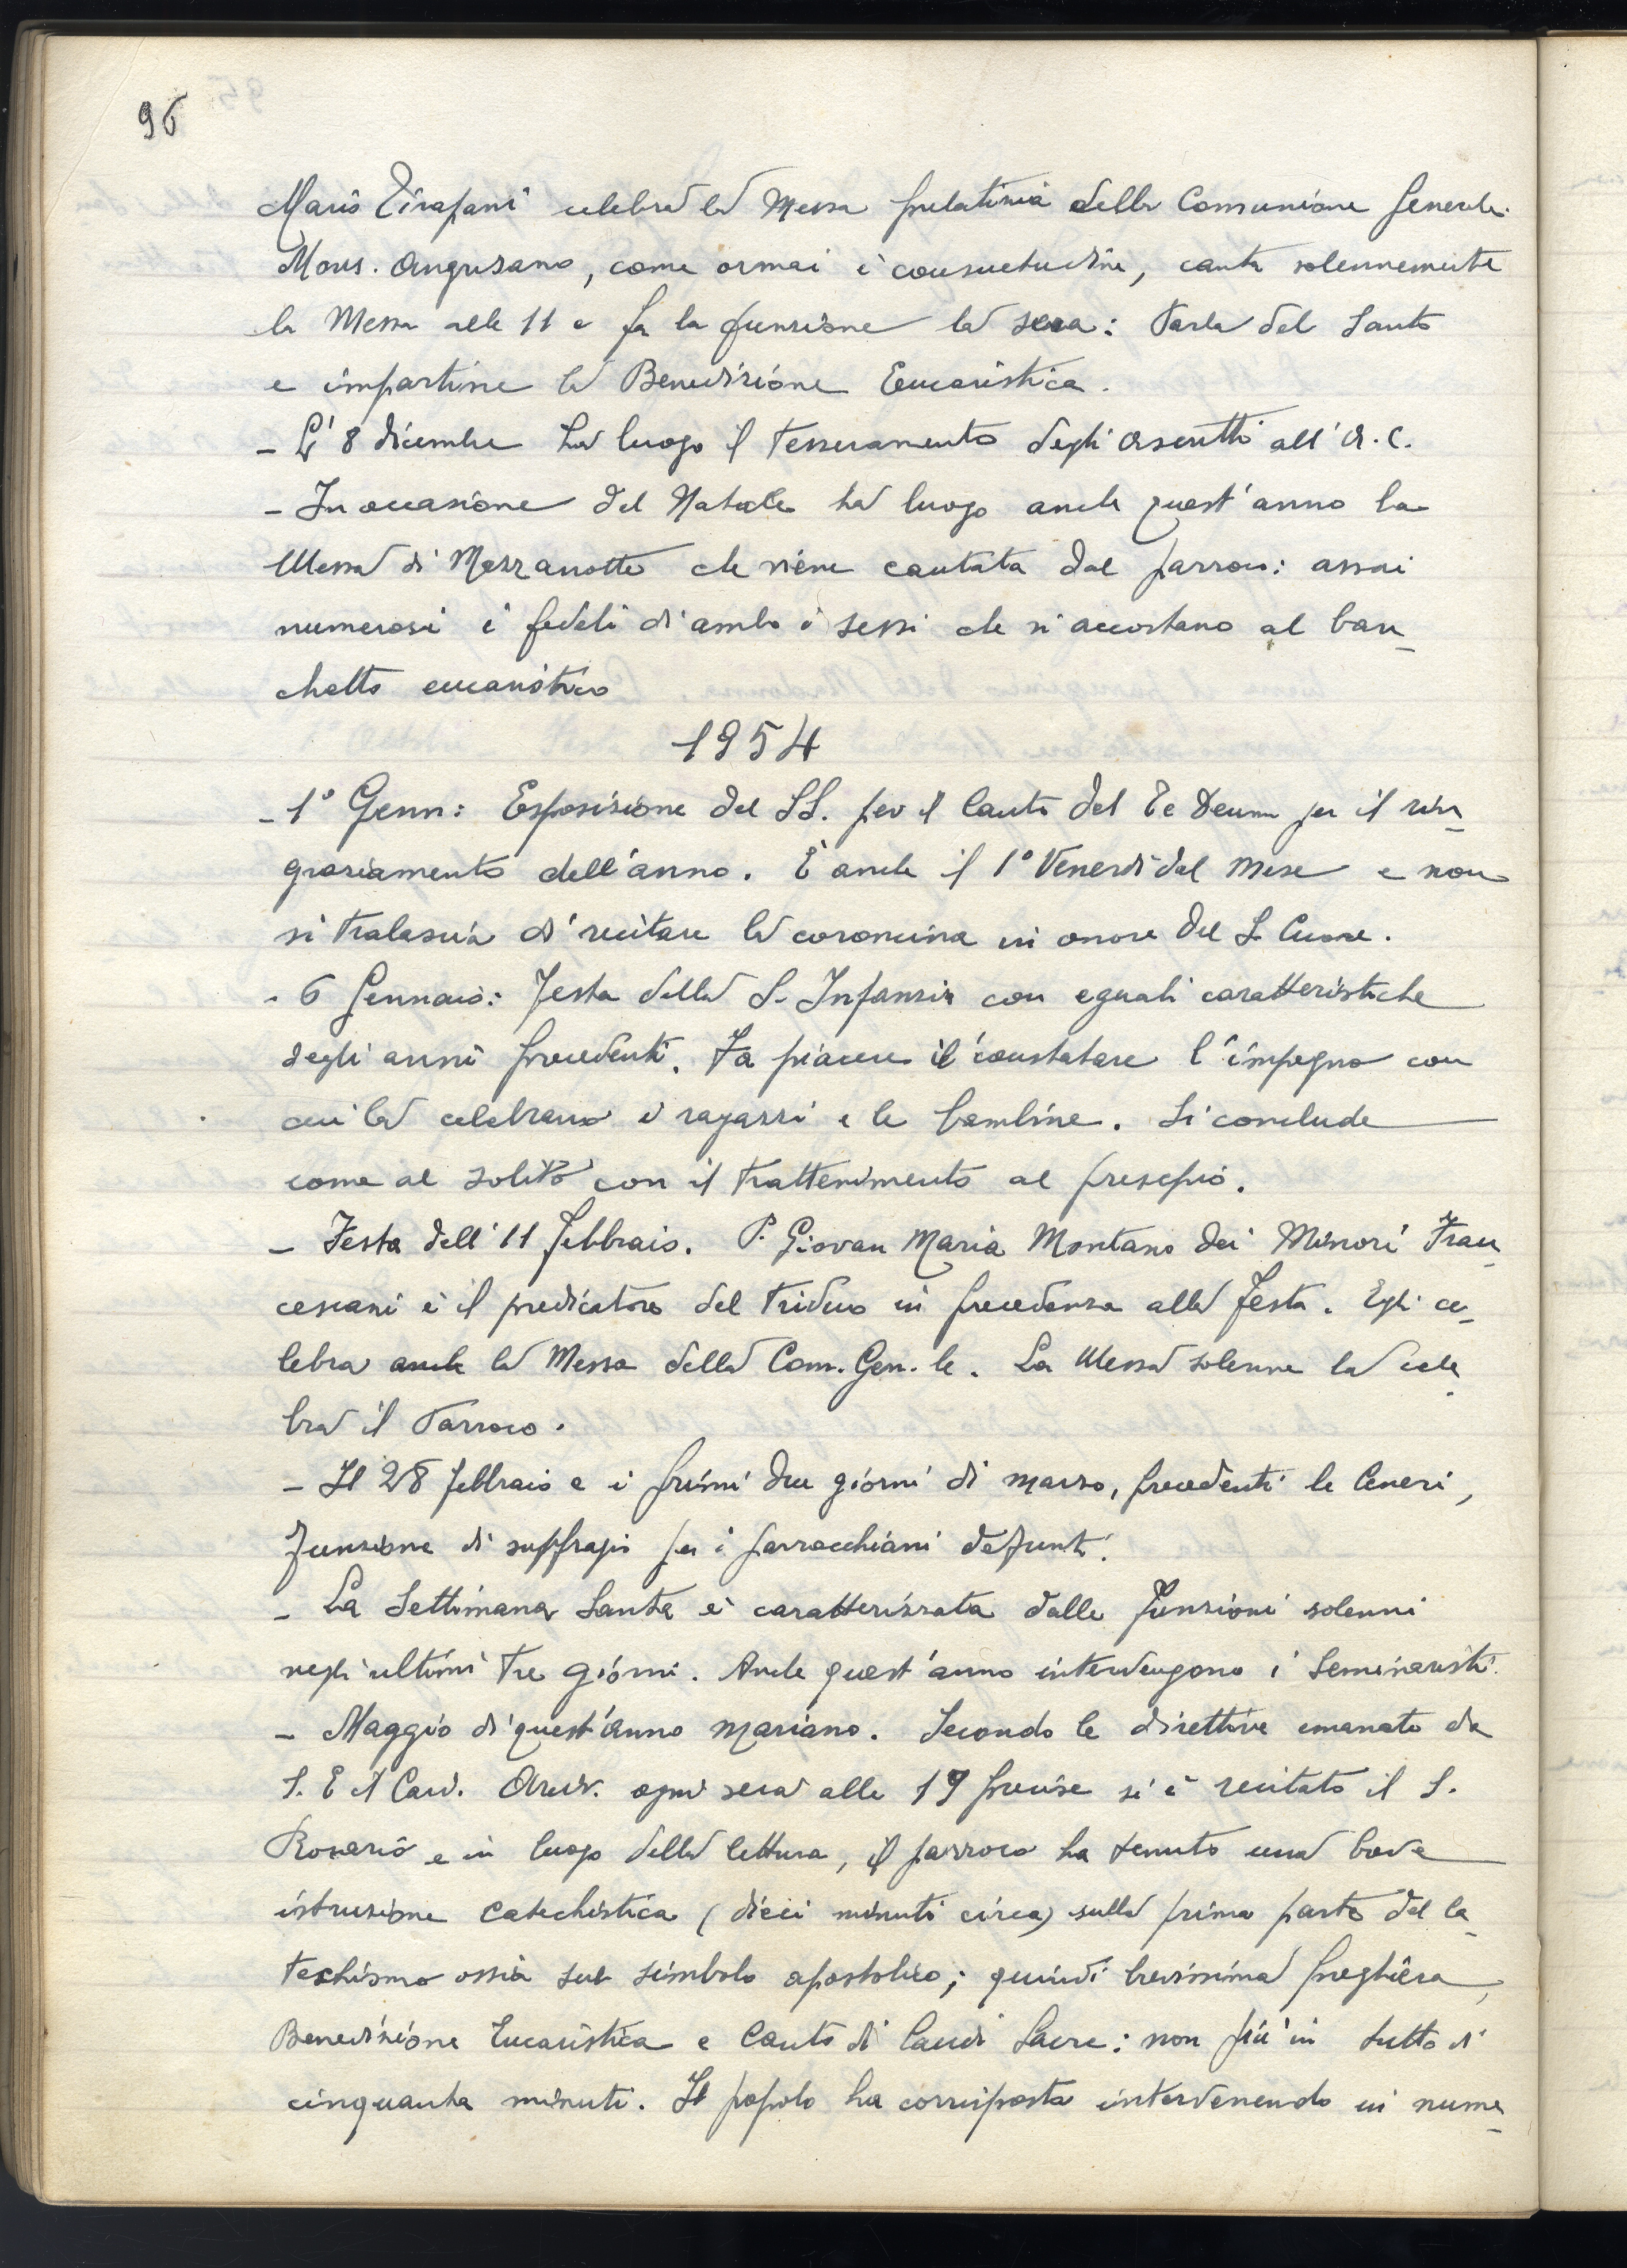 96
Mario Tirapani celebra la Messa prelatizia della Comunione Generale.
Mons. Angrisano, come ormai è consuetudine, canta solennemente
la Messa alle 11 e fa la funzione la sera: Parla del Santo
e impartine la Benedizione Eucaristica.
- L'8 dicembre ha luogo il Tesseramento degli ascritti all'A.C.
- In occasione del Natale ha luogo anche quest'anno la
Messa di Mezzanotte che viene cantata dal parroco: assai
numerosi i fedeli di ambo i sessi che si accostano al ban_
chetto eucaristico
1954
- 1° Genn: Esposizione del SS. per il Canto del Te Deum per il rin_
graziamento dell'anno. È anche il 1° Venerdì del mese e non
si tralascia di recitare la coroncina in onore del S. Cuore.
- 6 Gennaio: Festa della S. Infanzia con eguali caratteristiche
degli anni precedenti. Fa piacere il constatare l'impegno con
cui la celebrano i ragazzi e le bambine. Si conclude
come al solito con il trattenimento al presepio.
- Festa dell'11 febbraio. P. Giovan Maria Montano dei Minori Fran_
cescani è il predicatore del triduo in precedenza alla festa. Egli ce_
lebra anche la Messa della Com. Gen.le. La Messa solenne la cele_
bra il Parroco.
- Il 28 febbraio e i primi due giorni di marzo, precedenti le Ceneri,
funzione di suffragio per i parrocchiani defunti.
- La Settimana Santa è caratterizzata dalle funzioni solenni
negli ultimi tre giorni. Anche quest'anno intervengono i Seminaristi.
- Maggio di quest'anno mariano. Secondo le direttive emanate da
S. E. il Card. Arciv. ogni sera alle 19 precise si è recitato il S.
Rosario e in luogo della lettura, il parroco ha tenuto una breve
istruzione catechistica (dieci minuti circa) sulla prima parte del Ca_
techismo ossia sul simbolo apostolico; quindi brevissima preghiera,
Benedizione Eucaristica e Canto di laudi Sacre: non più in tutto di
cinquanta minuti. Il popolo ha corrisposto intervenendo in nume_